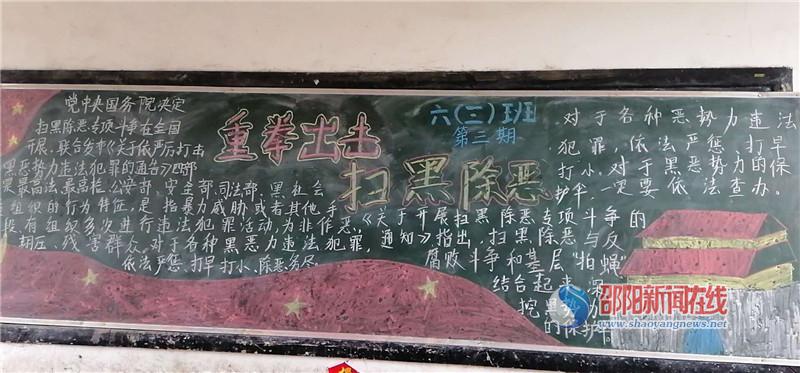 党中央国务院决定
扫黑除恶专项斗争在全国
开展、联合发布《关于依严厉打击
黑恶势力违法犯罪的通告》四部
最高法、最高检、公安部、安全部、司法部、黑社会
组织的行为特征,是指暴力威胁或者其他手
段有组织多次进行违法犯罪活动,为非作恶,
欺压、残害群众。对于各种黑恶力违法犯罪,
依法严惩、打早打小、除恶务尽
重拳出击
扫黑除恶
六(三)班
第三期
对于各种恶势力违法
犯罪,依法严惩、打早
打小,对于黑恶势力的保
护伞,一定要依法查办。
《关于开展扫黑除恶专项斗争的
通知》指出,扫黑除恶与反
腐败斗争和基层"拍蝇"
结合起来,深
挖黑 力
的保护
邵阳新闻在线
www.shaoyangnews.net